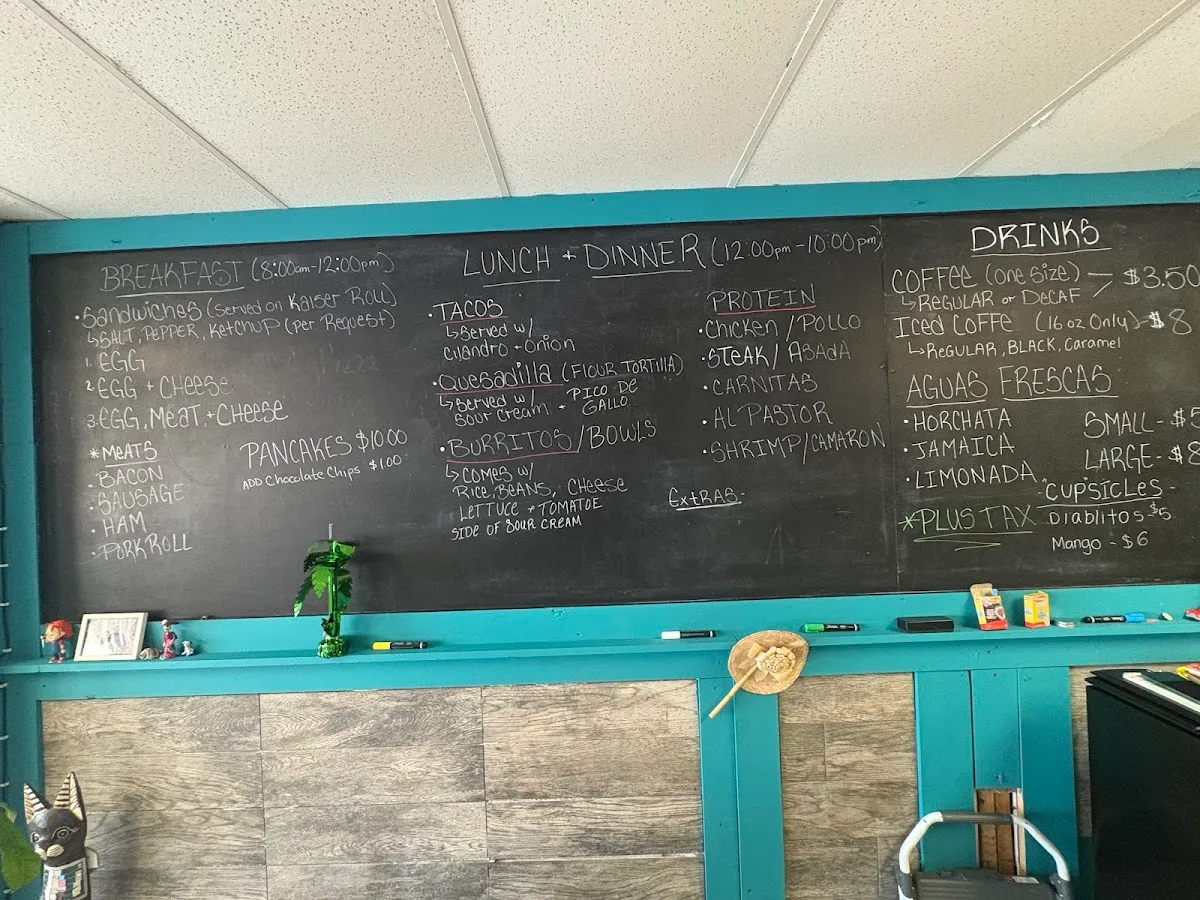 BREAKFAST (8:00am-12:00pm)
• Sandwiches (Served on Kaiser Roll)
↳ SALT, PEPPER, Ketchup (per Request)
1. EGG
2. EGG + CHEESE
3. EGG, MEAT, + CHEESE
* MEATS
• BACON
• SAUSAGE
• HAM
• PORK ROLL
PANCAKES $10.00
ADD Chocolate Chips $1.00
LUNCH + DINNER (12:00pm-10:00pm)
• TACOS
↳ Served w/
Cilandro + Onion
• Quesadilla (FLOUR TORTILLA)
↳ Served w/
Sour Cream + PICO DE
GALLO
• BURRITOS/BOWLS
↳ COMES w/
RICE, BEANS, CHEESE
LETTUCE + TOMATOE
SIDE OF SOUR CREAM
PROTEIN
• Chicken / POLLO
• STEAK / ASADA
• CARNITAS
• AL PASTOR
• SHRIMP/CAMARON
ExtRAS-
DRINKS
COFFEE (one Size) > $3.50
↳ REGULAR or DECAF
Iced COFFE (16 oz Only) - $8
↳ REGULAR, BLACK, Caramel
AGUAS FRESCAS
• HORCHATA
• JAMAICA
• LIMONADA
SMALL - $5
LARGE - $8
"CUPSICLES"
Diablitos $5
Mango - $6
*PLUS TAX